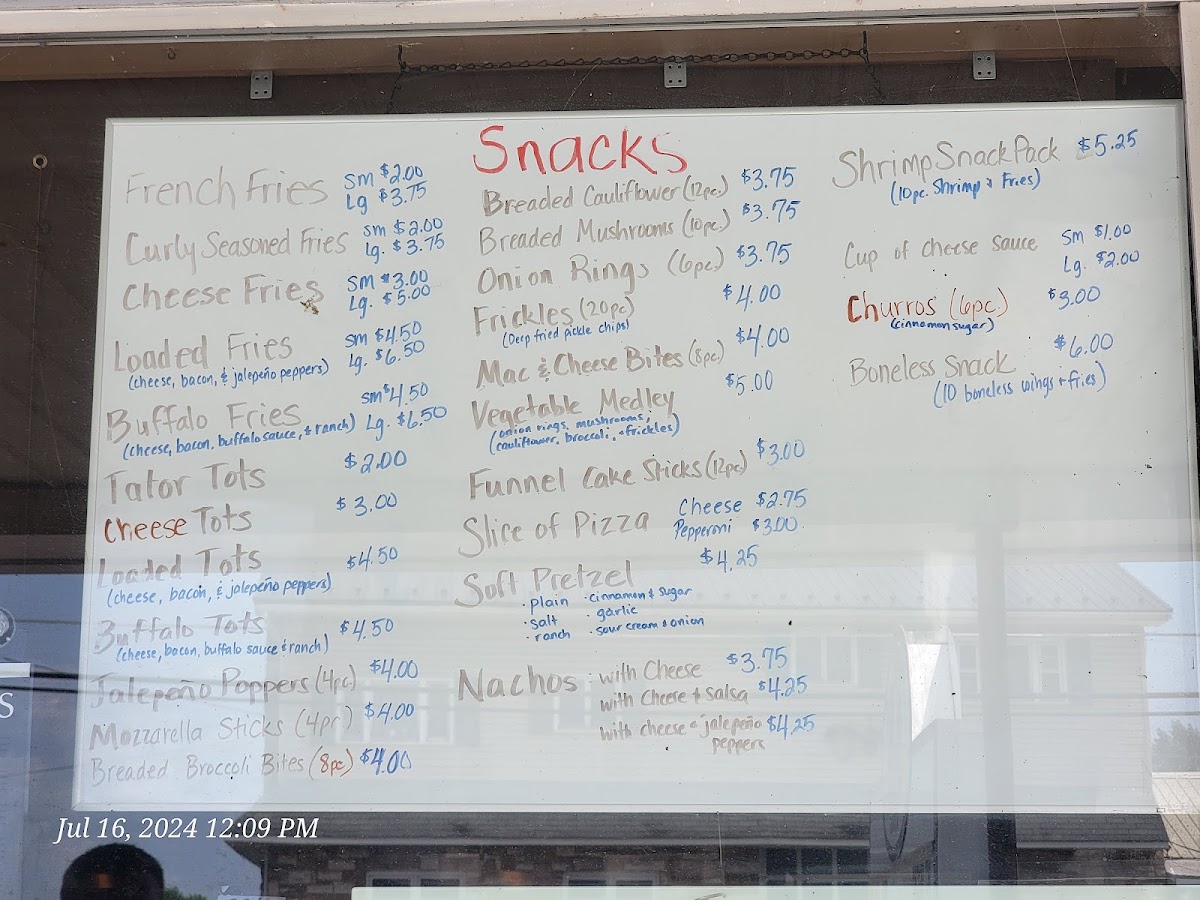 Snacks
French Fries Sm $2.00
Lg $3.75
Curly Seasoned Fries Sm $2.00
Lg. $3.75
Cheese Fries Sm $3.00
Lg. $5.00
Loaded Fries Sm $4.50
(cheese, bacon, & jalepeño peppers) Lg. $6.50
Buffalo Fries Sm $4.50
(cheese, bacon, buffalo sauce, & ranch) Lg. $6.50
Tator Tots $2.00
Cheese Tots $3.00
Loaded Tots $4.50
(cheese, bacon, & jalepeño peppers)
Buffalo Tots $4.50
(cheese, bacon, buffalo sauce & ranch)
Jalepeño Poppers (4pc) $4.00
Mozzarella Sticks (4pc) $4.00
Breaded Broccoli Bites (8pc) $4.00
Breaded Cauliflower (12pc.) $3.75
Breaded Mushrooms (10pc.) $3.75
Onion Rings (6pc.) $3.75
Frickles (20pc) $4.00
(Deep fried pickle chips)
Mac & Cheese Bites (8pc.) $4.00
Vegetable Medley $5.00
(onion rings, mushrooms,
cauliflower, broccoli, + frickles)
Funnel Cake Sticks (12pc) $3.00
Slice of Pizza Cheese $2.75
Pepperoni $3.00
Soft Pretzel $4.25
· plain · cinnamon & sugar
· salt · garlic
· ranch · sour cream & onion
Nachos · with Cheese $3.75
with Cheese & Salsa $4.25
with cheese & jalepeño $4.25
peppers
Shrimp Snack Pack $5.25
(10pc. Shrimp & Fries)
Cup of cheese sauce Sm $1.00
Lg. $2.00
Churros (6pc) $3.00
(cinnamon sugar)
Boneless Snack $6.00
(10 boneless wings + fries)
S
Jul 16, 2024 12:09 PM